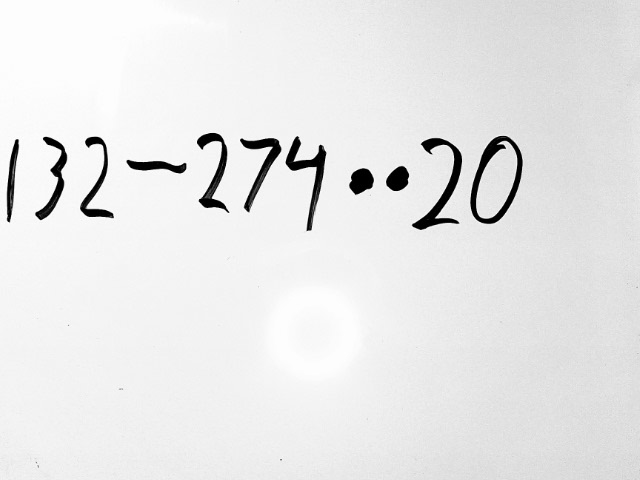 132-274••20